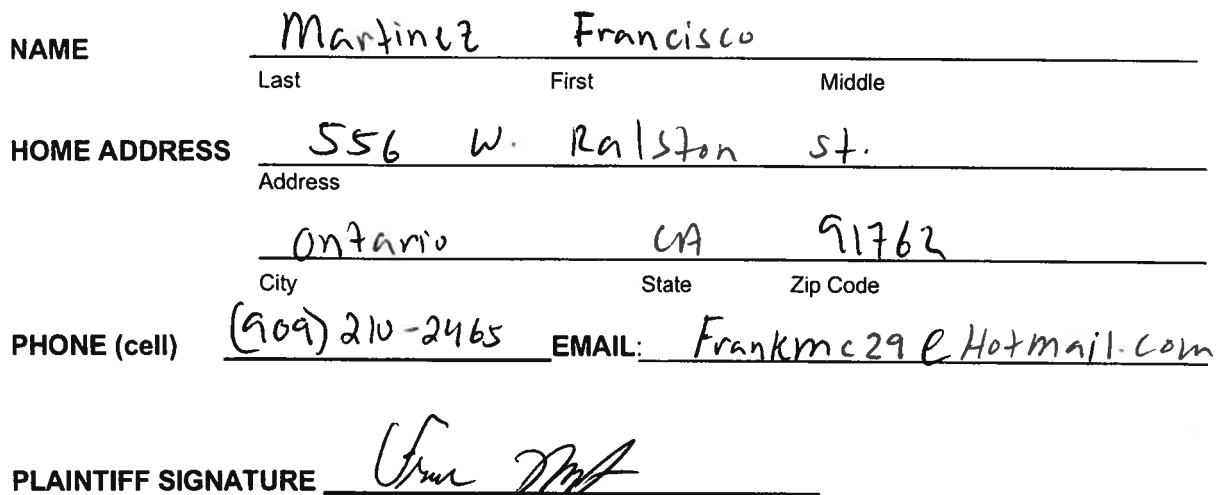 NAME Martinez Francisco
Last First Middle
HOME ADDRESS 556 W. Ralston st.
Address
Ontario CA 91762
City State Zip Code
PHONE (cell) (909) 210-2465 EMAIL: Frankmc29@Hotmail.com
PLAINTIFF SIGNATURE